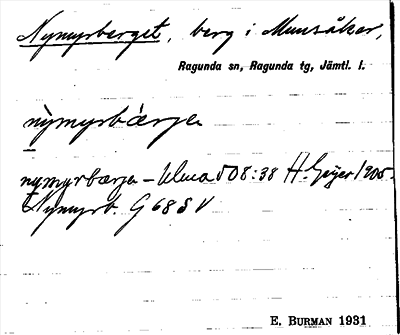 Nymyrberget, berg i Munsåker,
Ragunda sn, Ragunda tg, Jämtl. l.
nỳmyrbàrja
nymyrbærja – Ulma 508:38 H. Geijer 1905.
Nymyrb. G 68 S V
E. BURMAN 1931